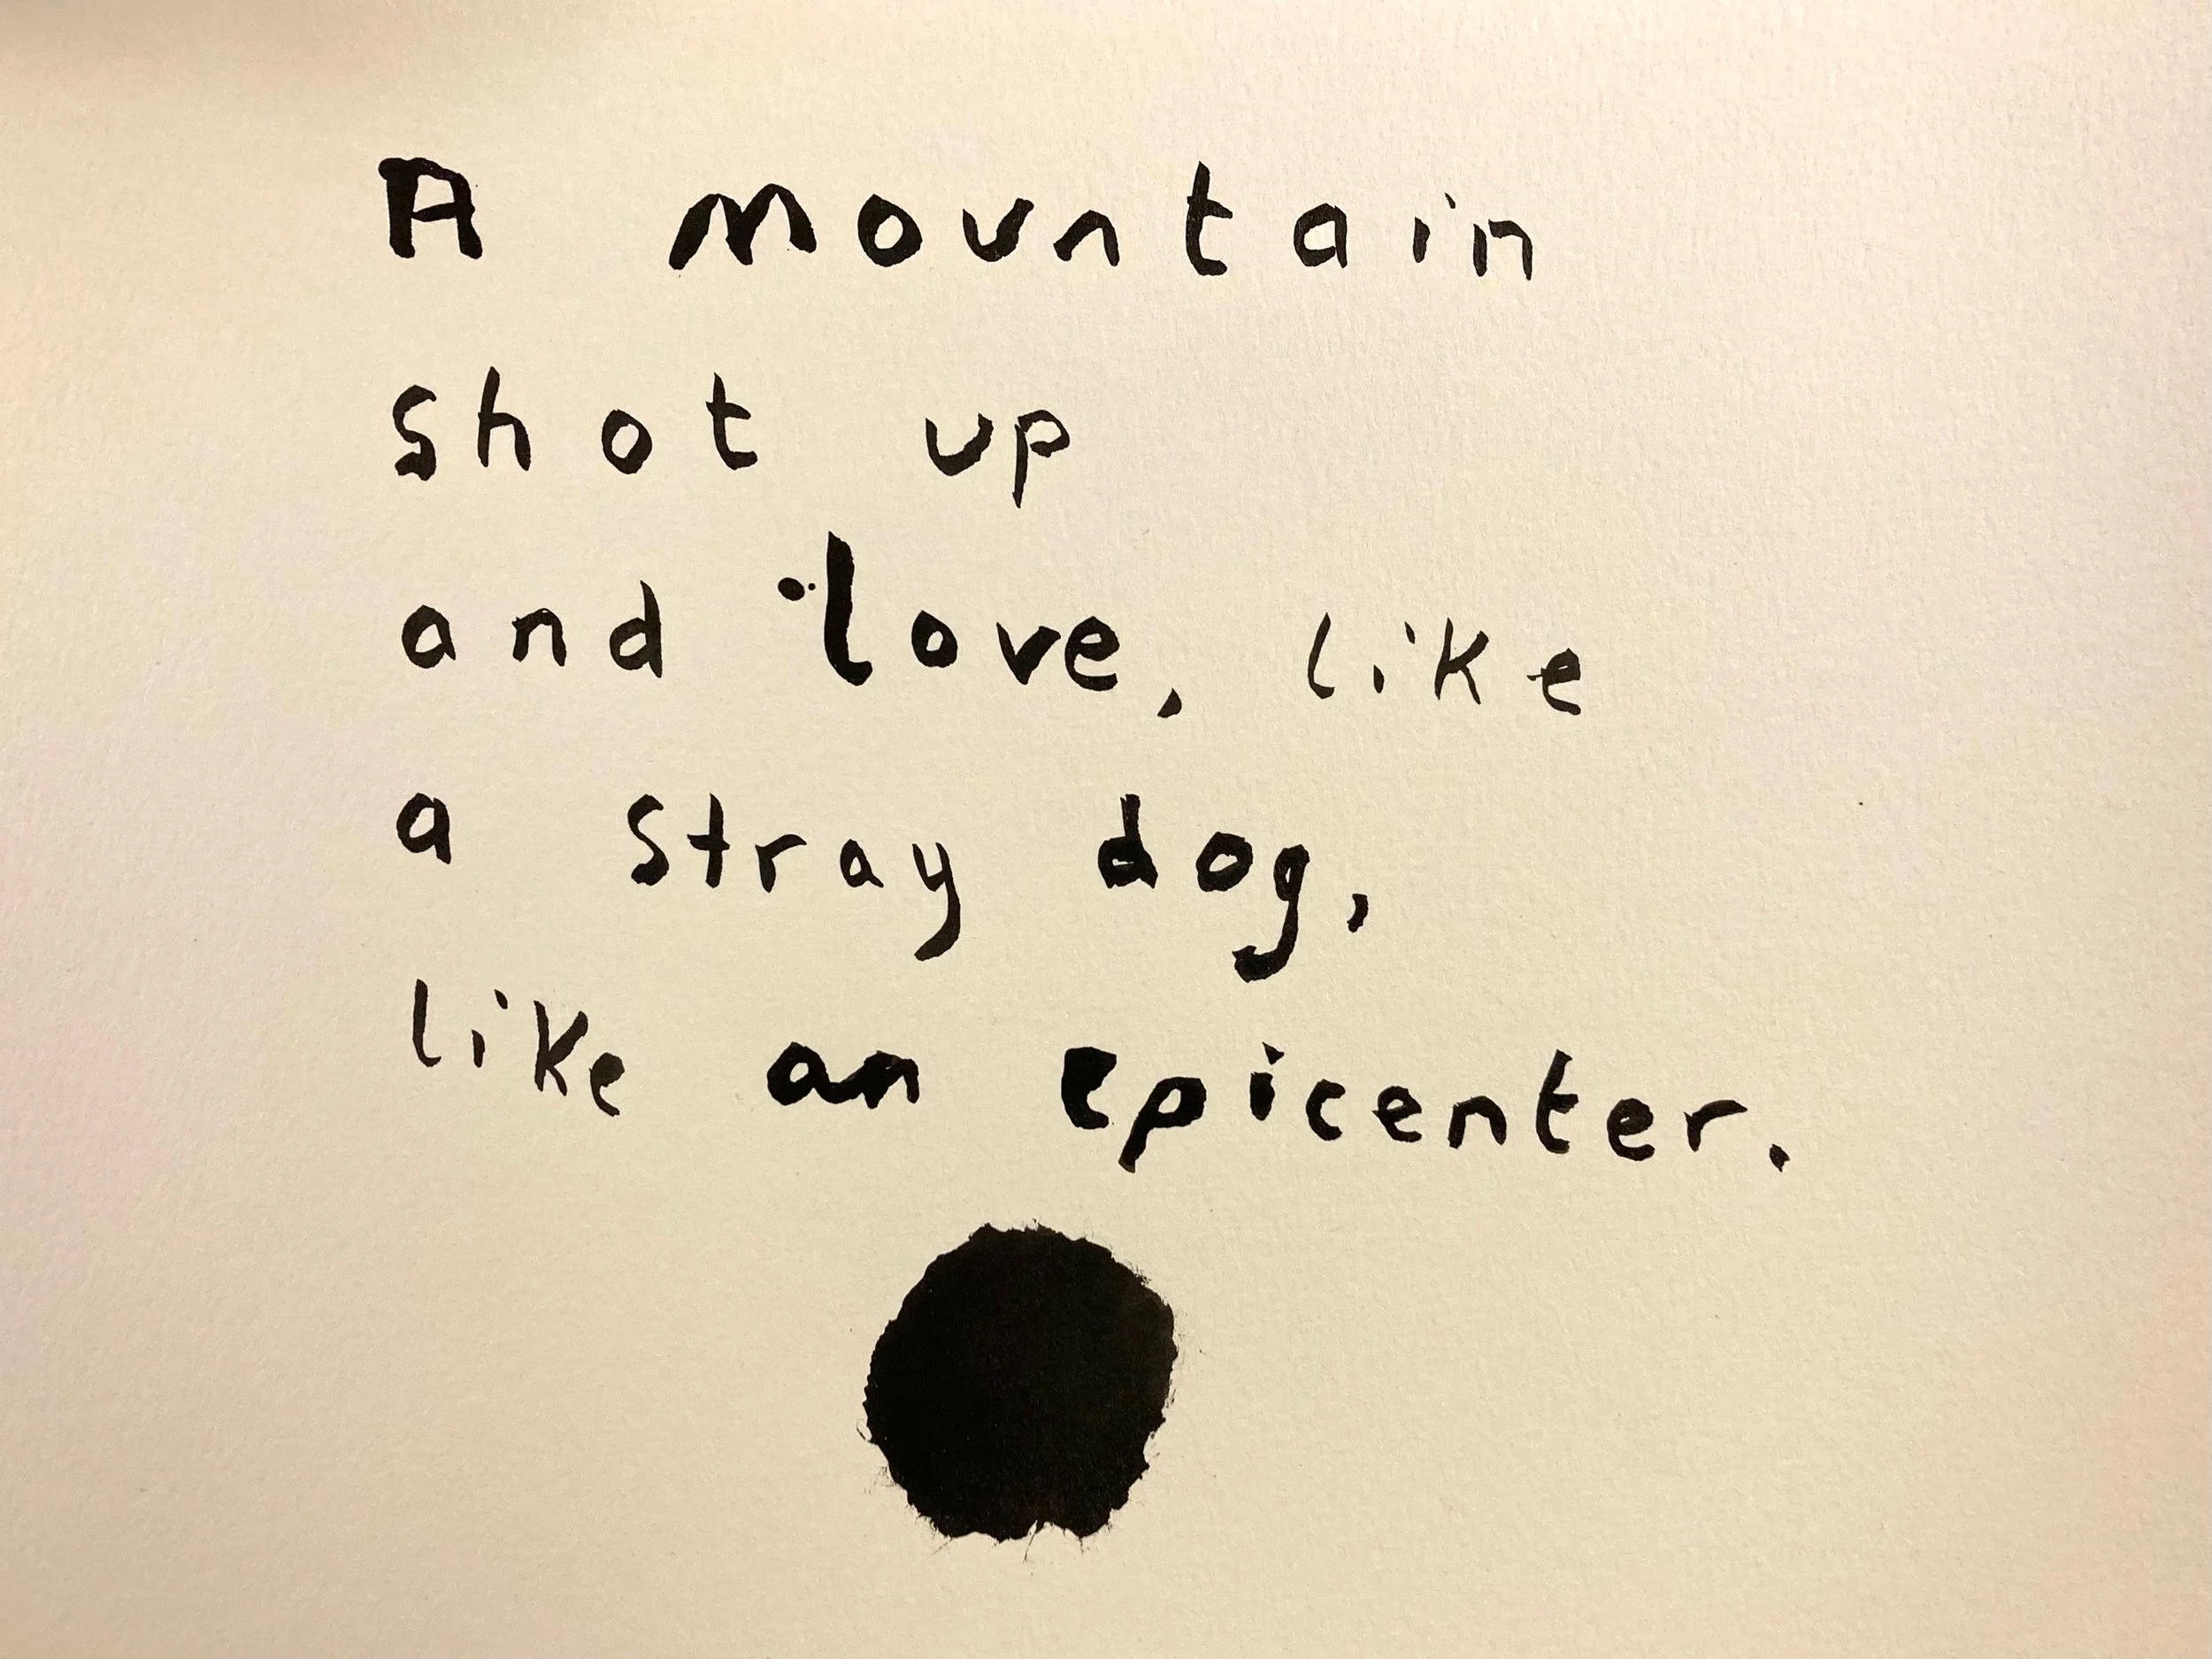 A mountain
shot up
and love, like
a stray dog,
like an epicenter.